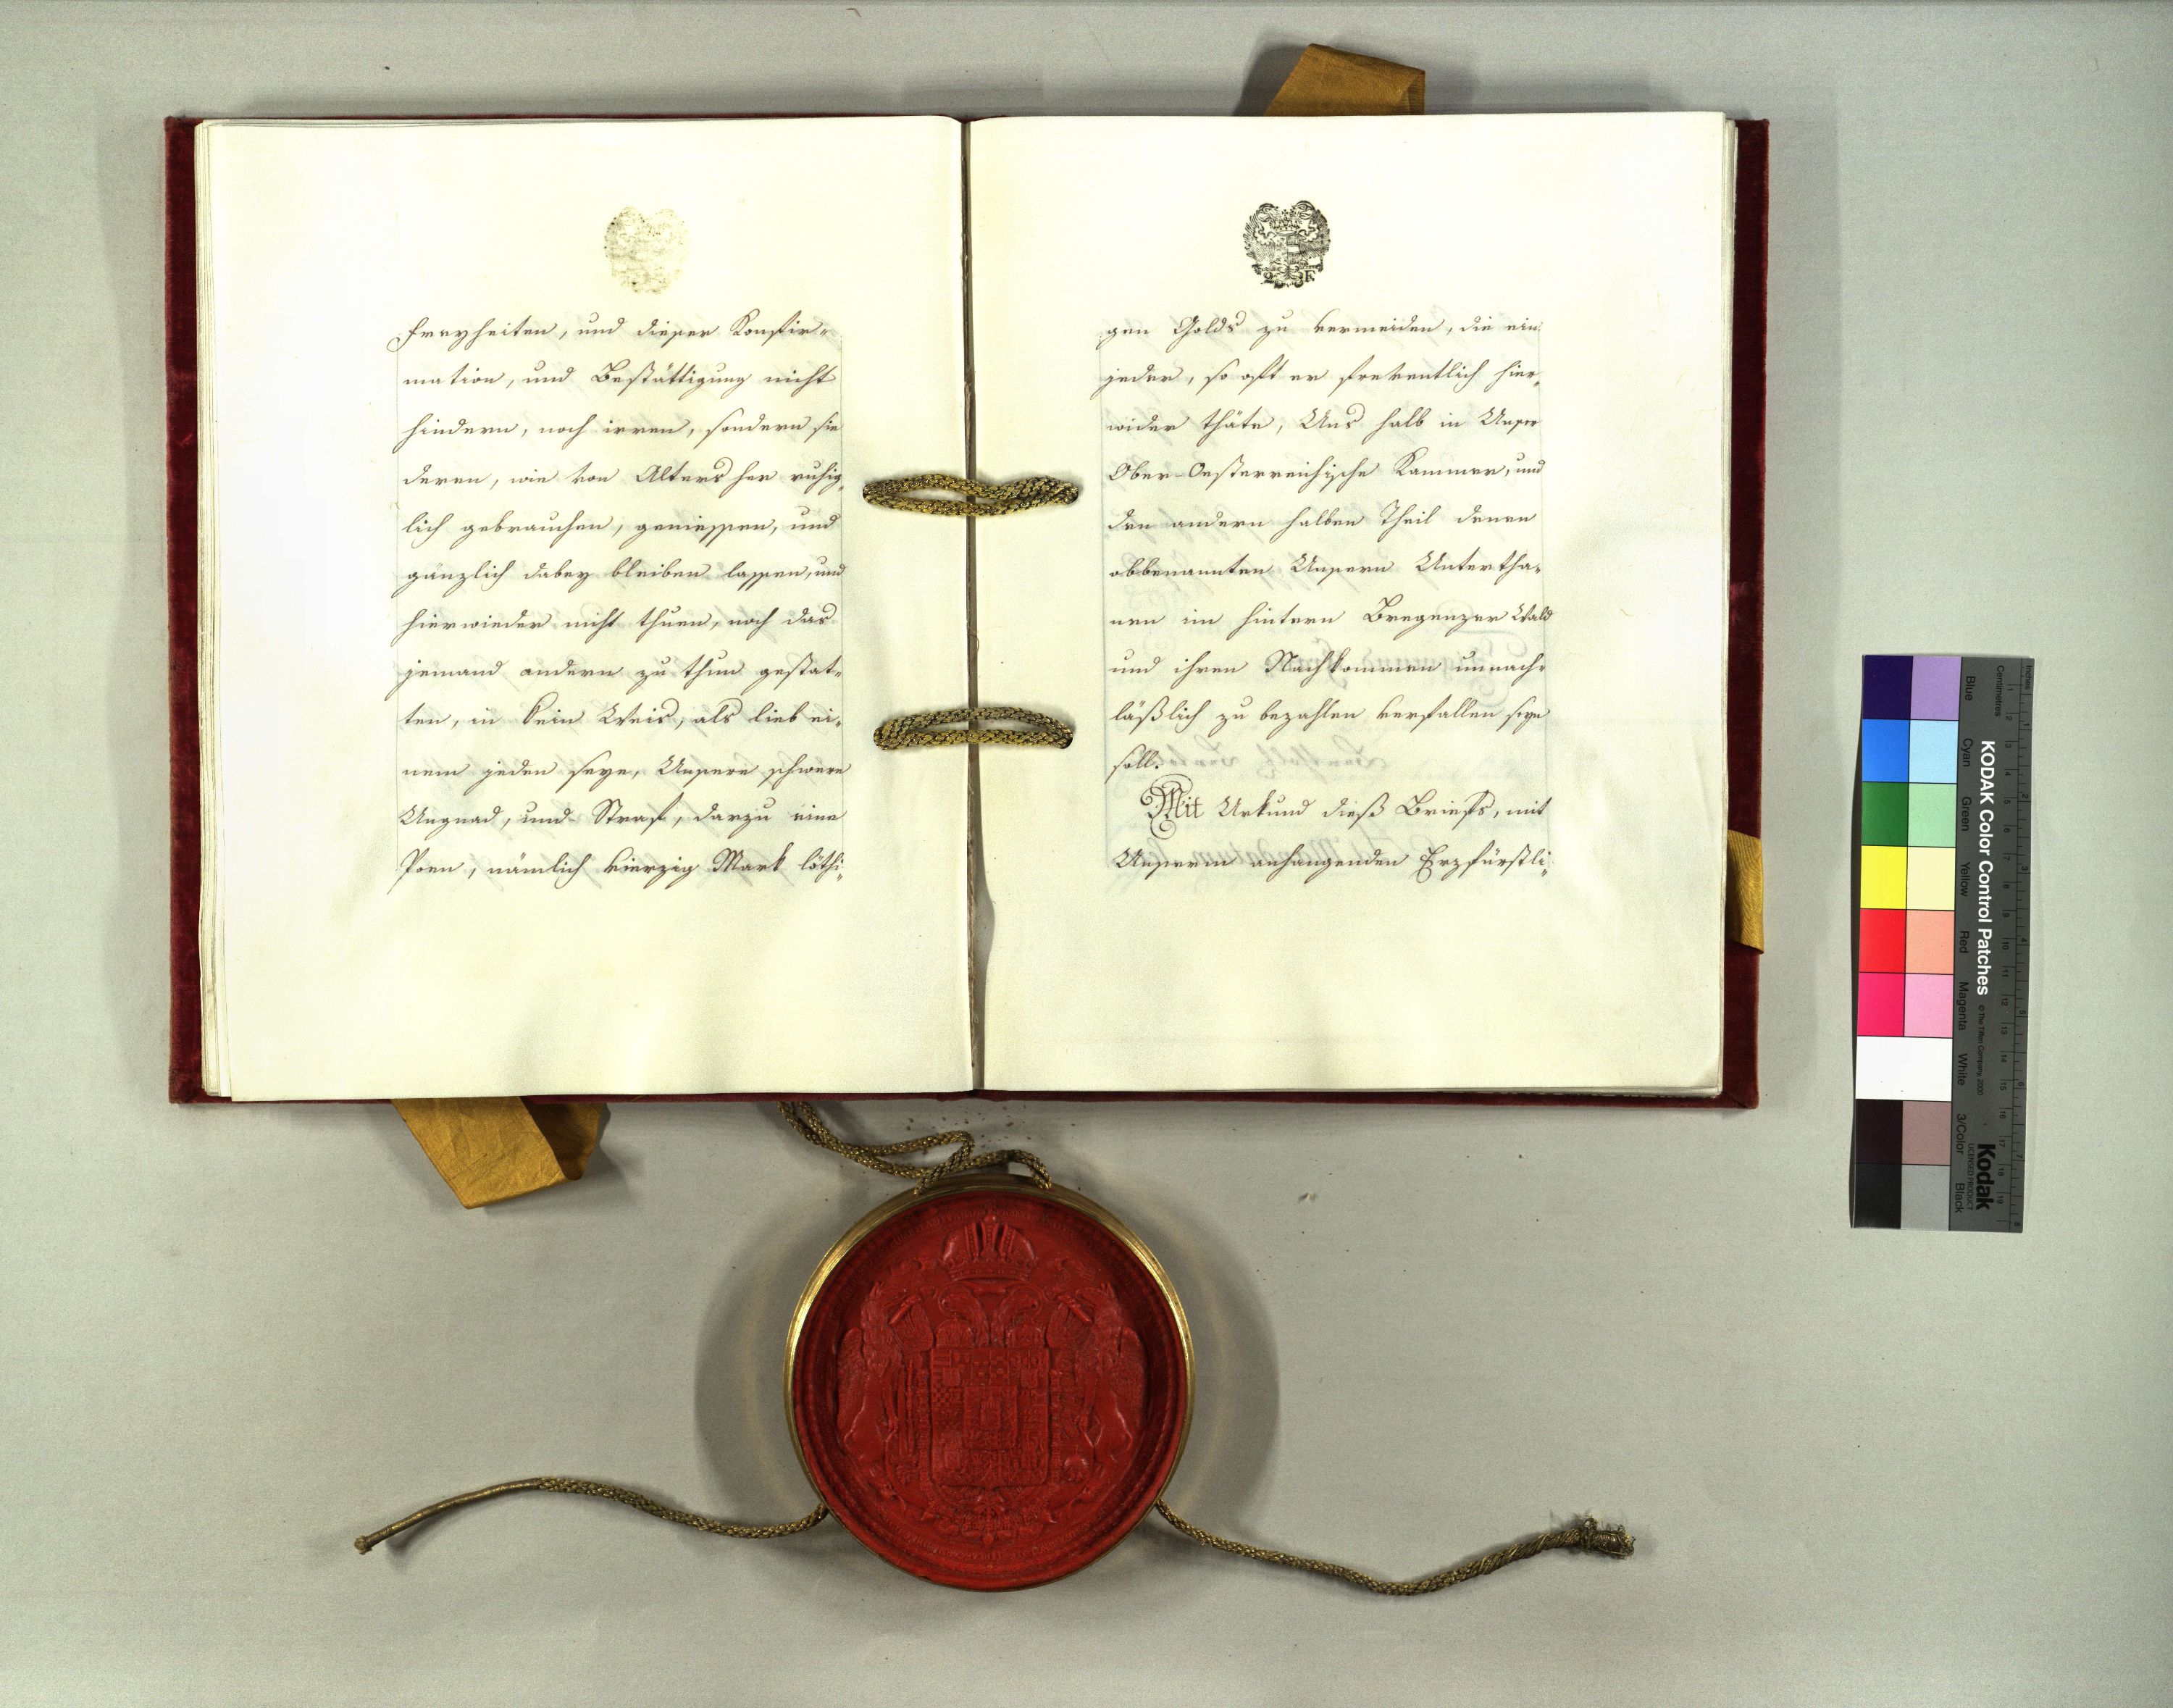 Freyheiten, und dieser Konfir=
mation, und Bestättigung nicht
hindern, noch irren, sondern sie
deren, wie von Alters her ruhig=
lich gebrauchen, geniessen, und
gänzlich dabey bleiben lassen, und
hierwieder nicht thuen, noch das
jemand andern zu thun gestat=
ten, in kein Weis, als lieb ei=
nem jeden seye, Unsere schwere
Ungnad, und Straf, darzu eine
Poen, nämlich vierzig Mark löthi=
gen Golds zu vermeiden, die ein
jeder, so oft er freventlich hier=
wider thäte, Uns halb in Unser
Ober-Oesterreichische Kammer, und
den andern halben Theil denen
obbenannten Unsern Untertha=
nen im hintern Bregenzer Wald
und ihren Nachkommen unnach=
läßlich zu bezahlen verfallen seyn
soll.
Mit Urkund dieß Briefs, mit
Unserm anhangenden Erzfürstli=
KODAK Color Control Patches
© The Tiffen Company, 2000
Kodak
LICENSED PRODUCT
Inches
Centimetres
Blue
Cyan
Green
Yellow
Red
Magenta
White
3/Color
Black